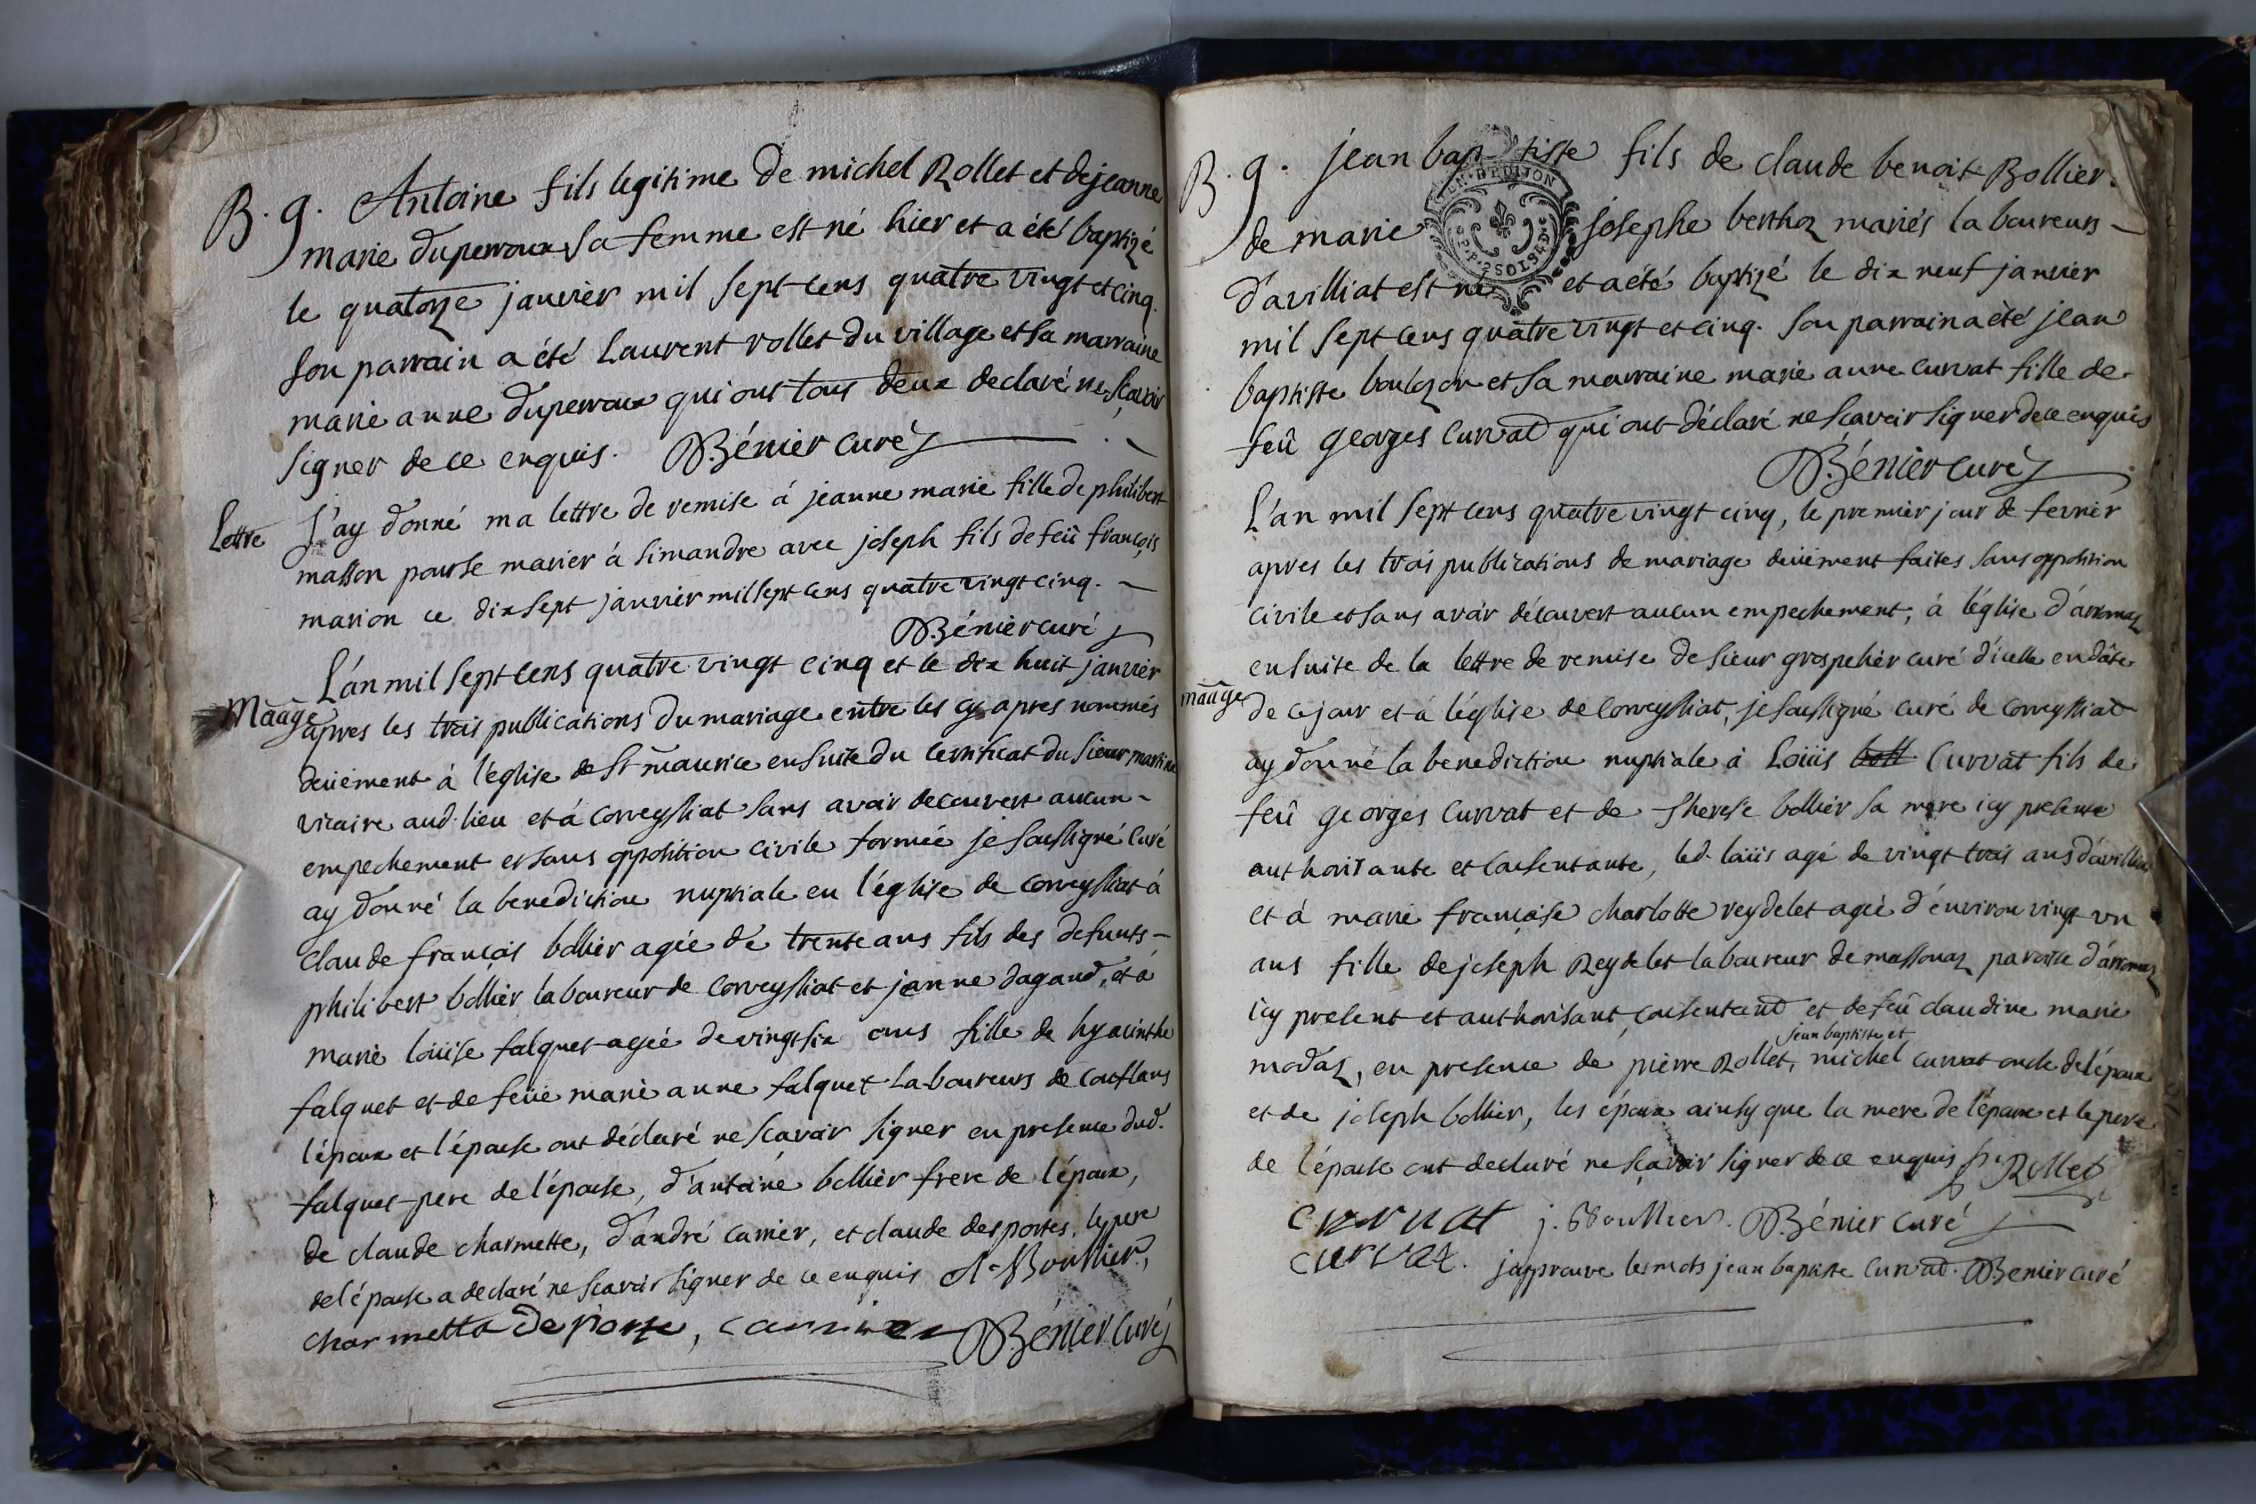 B. g. Antoine fils legitime de michel Rollet et de jeanne
marie duperroux sa femme est né hier et a été baptizé
le quatorze janvier mil sept cens quatre vingt et cinq.
son parrain a été Laurent rollet du village et sa marraine
marie anne duperroux qui ont tous deux declaré ne sçavoir
signer de ce enquis. Bénier curé
Lettre
J'ay donné ma lettre de remise á jeanne marie fille de philibert
masson pour se marier à simandre avec joseph fils de feû françois
marion ce dix sept janvier mil sept cens quatre vingt cinq.
Bénier curé
L'an mil sept cens quatre vingt cinq et le dix huit janvier
Maage
apres les trois publications du mariage entre les cy apres nommés
deüement à l'église de St maurice ensuite du certificat du sieur
vicaire aud. lieu et á corveyssiat sans avoir decouvert aucun
empechement et sans opposition civile formée je soussigné curé
ay donné la benediction nuptiale en l'église de corveyssiat á
claude françois bollier agée de trente ans fils des defunts
philibert bollier laboureur de corveyssiat et janne dagaud, et á
marie loüise falquet agée de vingt six ans fille de hyacinthe
falquet et de feüe marie anne falquet laboureurs de conflans
l'époux et l'épouse ont déclaré ne scavoir signer en presence dud.
falquet pere de l'épouse, d'antoine bollier frere de l'époux,
de claude charmette, d'andré carrier, et claude desportes. le pere
de l'épouse a declaré ne scavoir signer de ce enquis A. Boullier,
charmette deporte, carrier Bénier curé
B. g. jean baptiste fils de claude benoit Bollier
de marie josephe berthoz mariés laboureurs
d'avilliat est né et a été baptizé le dix neuf janvier
GEN. DE DIJON
P.P. 2 SOLS 4 D.
mil sept cens quatre vingt et cinq. son parrain a été jean
baptiste boulozon et sa marraine marie anne curvat fille de
feû georges curvat qui ont déclaré ne scavoir signer de ce enquis
Bénier curé
L'an mil sept cens quatre vingt cinq, le premier jour de fevrier
apres les trois publications de mariage deüement faites sans opposition
civile et sans avoir découvert aucun empechement, á l'église d'aromaz
ensuite de la lettre de remise de sieur grospelier curé d'icelle en dâte
maage
de ce jour et á l'église de corveyssiat, je soussigné curé de corveyssiat
ay donné la benediction nuptiale á Loüis boll curvat fils de
feû georges curvat et de therese bollier sa mere icy presente
authorisante et consentante, led. loüis agé de vingt trois ans d'avilliat
et á marie françoise charlotte reydelet agée d'environ vingt un
ans fille de joseph Reydelet laboureur de massonaz paroisse d'aromaz
icy present et authorisant, consentant et de feû claudine marie
jean baptiste et
modaz, en presence de pierre Rollet, michel curvat oncle de l'époux
et de joseph bollier, les époux ainsy que la mere de l'époux et le pere
de l'épouse ont declaré ne sçavoir signer de ce enquis p. Rollet
curvat j. Boullier. Bénier curé
curvat. j'approuve les mots jean baptiste curvat. Benier curé